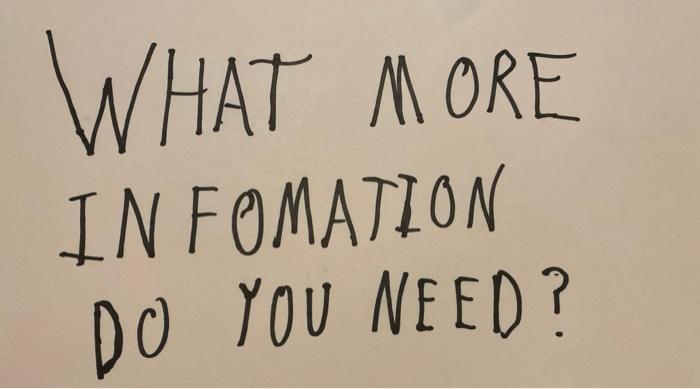 WHAT MORE
INFOMATION
DO YOU NEED?